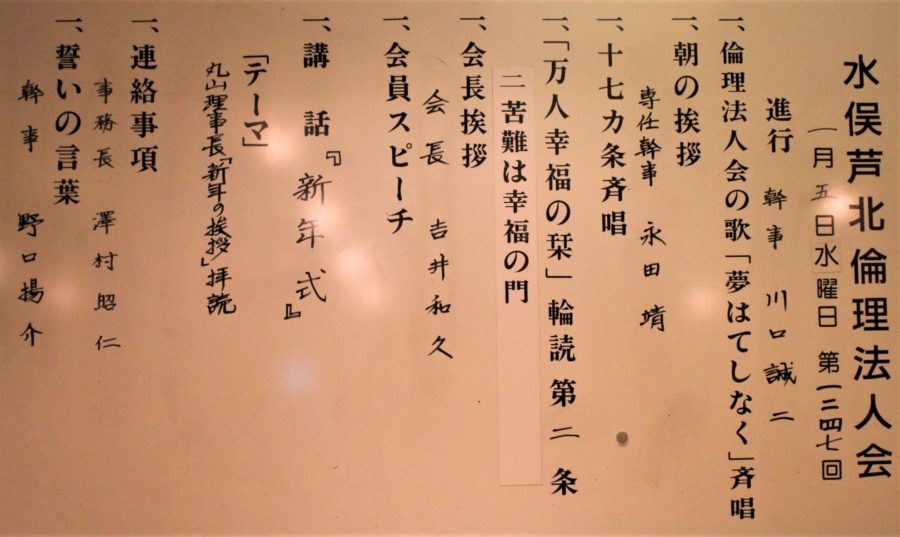 水俣芦北倫理法人会
一月五日水曜日 第一三四七回
進行 幹事 川口誠二
一、倫理法人会の歌「夢はてしなく」斉唱
一、朝の挨拶
専任幹事 永田靖
一、十七カ条斉唱
一、「万人幸福の栞」輪読 第二条
二苦難は幸福の門
一、会長挨拶
会長 吉井和久
一、会員スピーチ
一、講話『新年式』
「テーマ」
丸山理事長「新年の挨拶」拝読
一、連絡事項
事務長 澤村昭仁
一、誓いの言葉
幹事 野口揚介